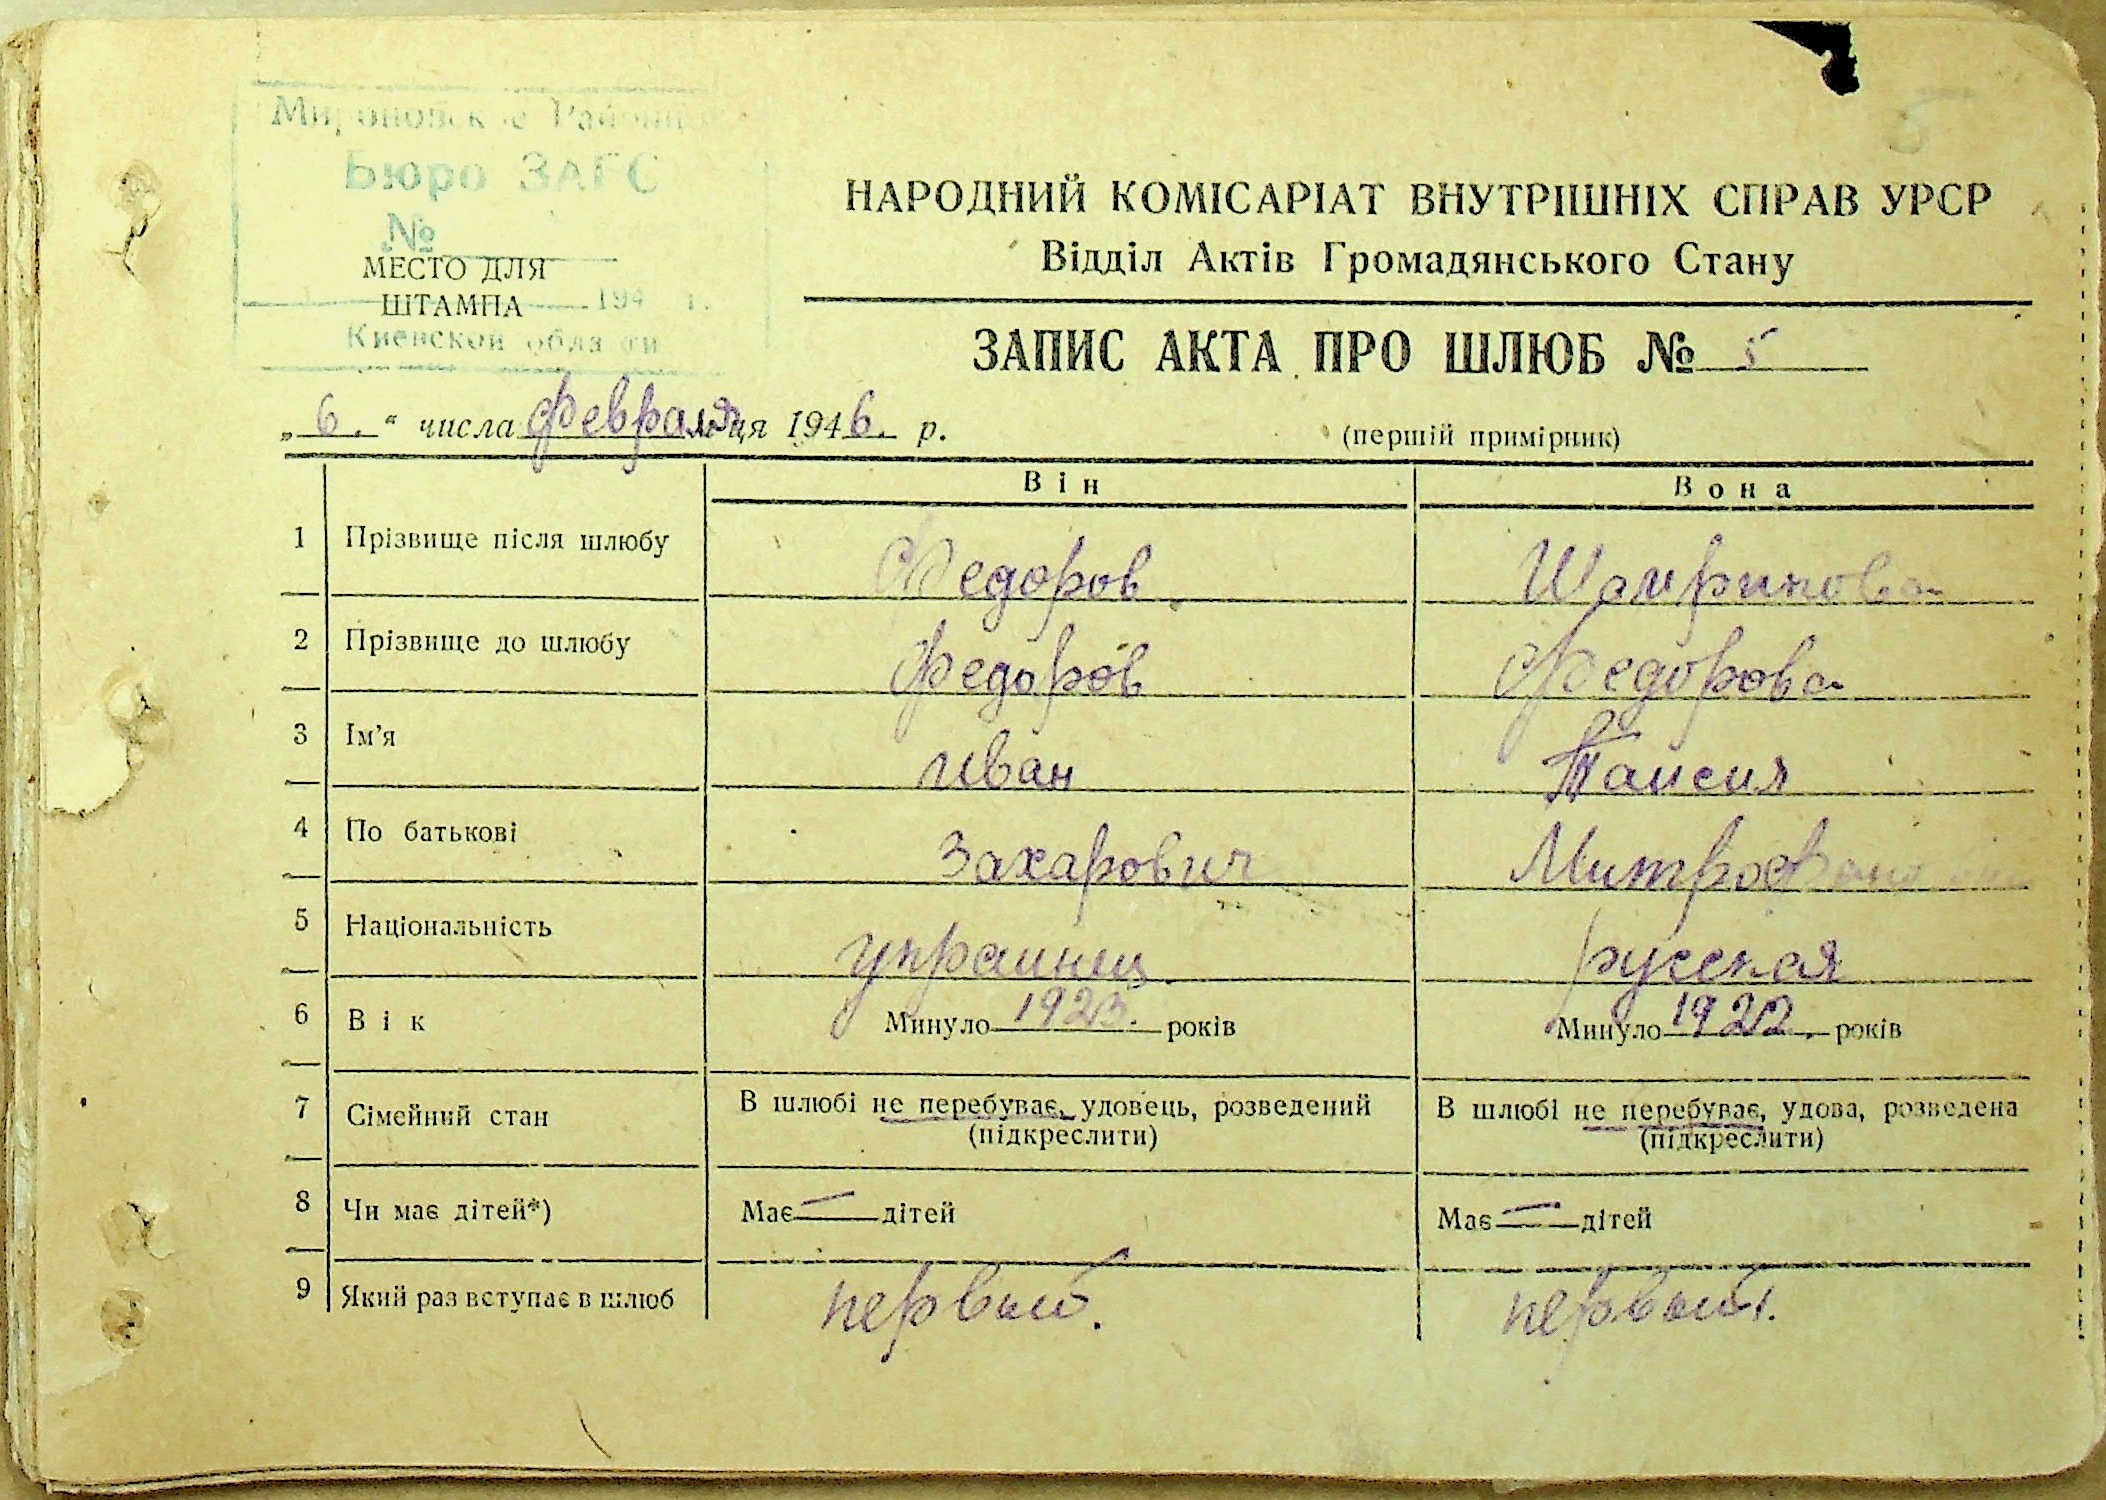 5
Мироновское Районное
Бюро ЗАГС
№
МЕСТО ДЛЯ
ШТАМПА 194 г.
Киевской области
НАРОДНИЙ КОМІСАРІАТ ВНУТРІШНІХ СПРАВ УРСР
Відділ Актів Громадянського Стану
ЗАПИС АКТА ПРО ШЛЮБ № 5
„6.“ числа февраля місяця 1946. р.
(перший примірник)
Він Вона
1 Прізвище після шлюбу Федоров.
2 Прізвище до шлюбу Федоров Федорова
3 Ім'я Иван Таисия
4 По батькові Захарович
5 Національність украинец русская
6 Вік Минуло 1923. років Минуло 1922. років
7 Сімейний стан В шлюбі не перебуває, удовець, розведений В шлюбі не перебуває, удова, розведена
(підкреслити) (підкреслити)
8 Чи має дітей*) Має — дітей Має — дітей
9 Який раз вступає в шлюб первый. первый.